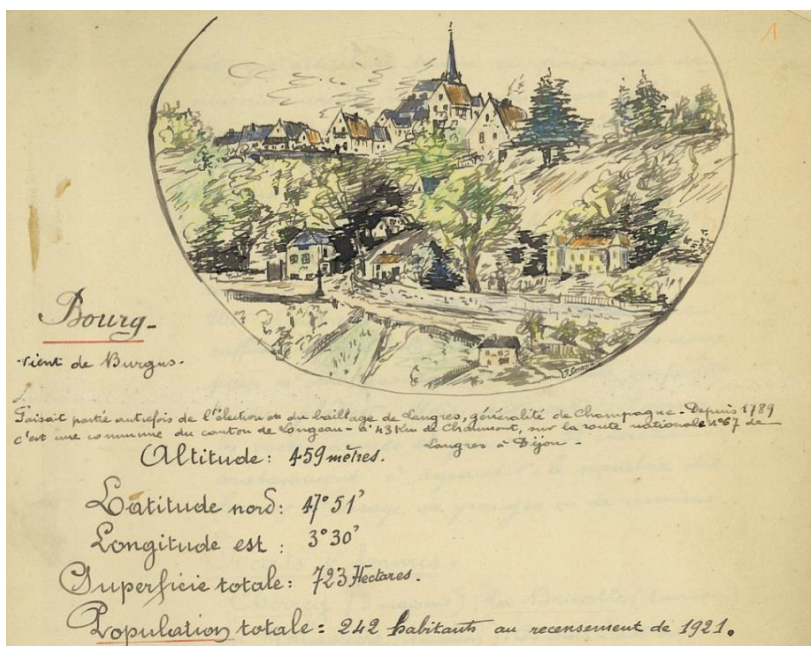 1
Bourg-
vient de Burgus.
Faisait partie autrefois de l'élection ou du bailliage de Langres, généralité de Champagne - Depuis 1789
c'est une commune du canton de Longeau - à 43 Km de Chaumont, sur la route nationale n°67 de
Langres à Dijon -
Altitude: 459 mètres.
Latitude nord: 47°51'
Longitude est : 3°30'
Superficie totale: 723 Hectares.
Population totale: 242 habitants au recensement de 1921.